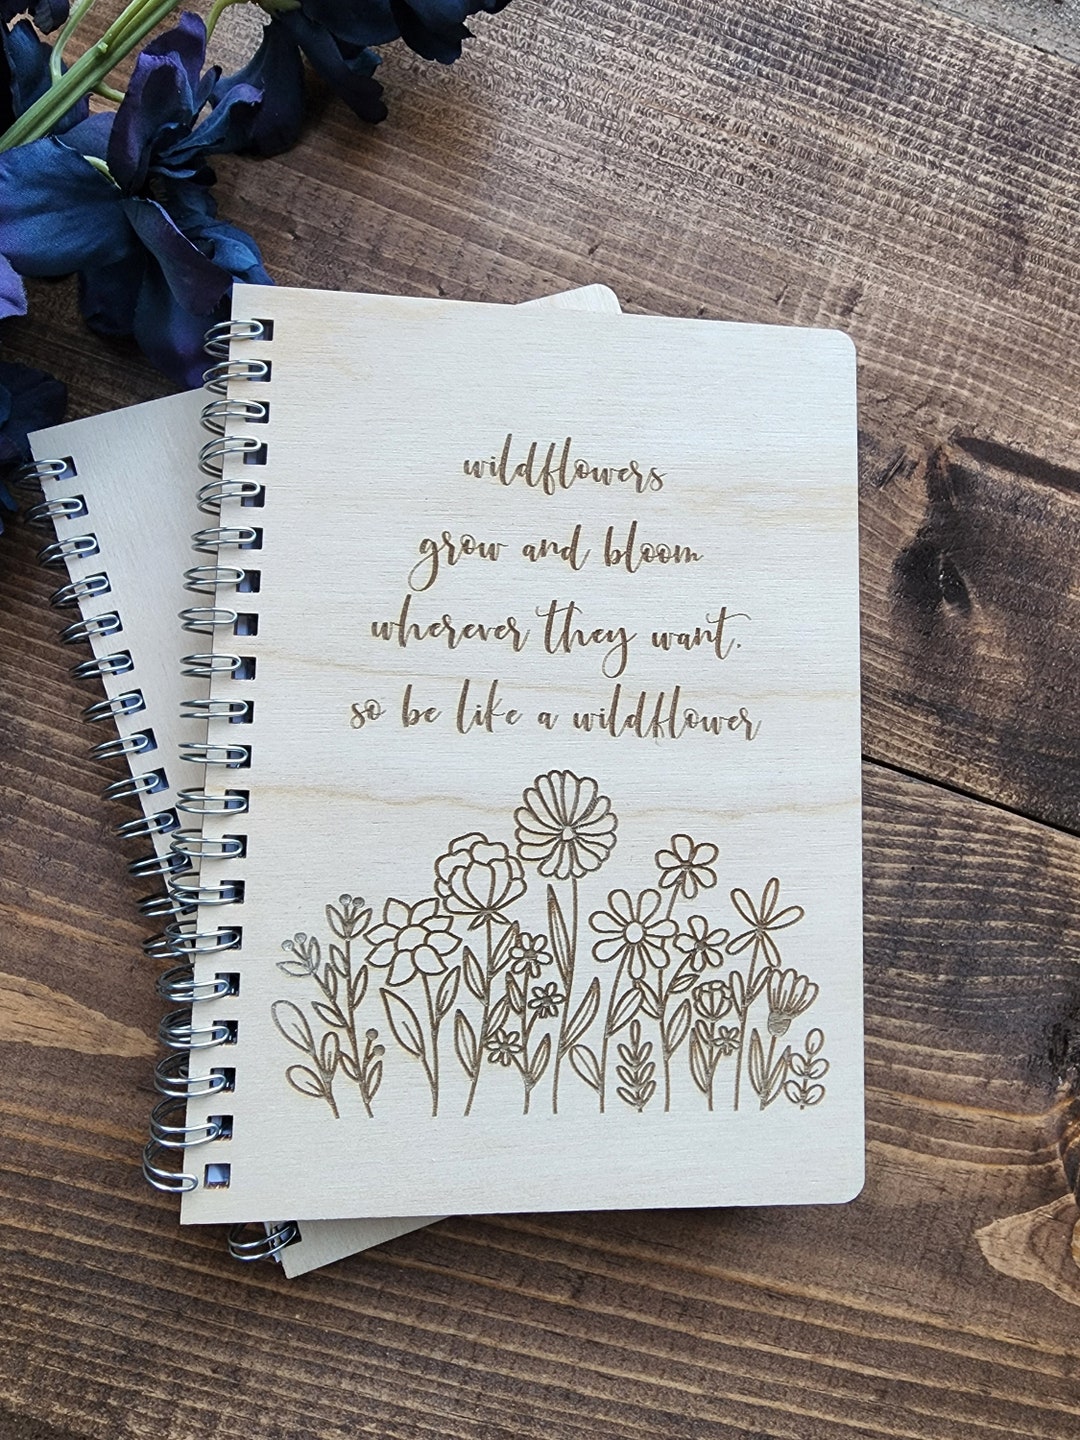 wildflowers
grow and bloom
wherever they want.
so be like a wildflower